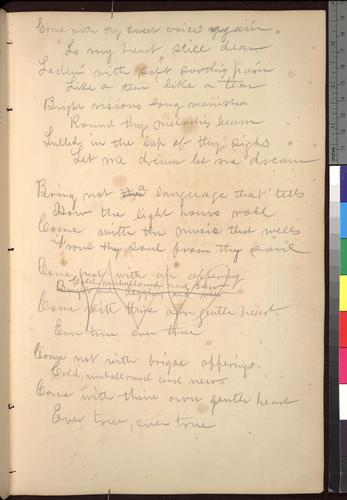 Come with thy sweet voice again
To my heart still dear
Laden with soft soothing pain
Like a tear like a tear
Bright visions long vanished
Round thy melodies beam
Lulled in the lap of thy sighs
Let me dream let me dream
Bring not a language that tells
How the light hours roll
Come with the music that wells
From thy soul from thy soul
Come not with an offering
Cold, unhallowed and new
Come with thine own gentle heart
Ever true ever true
Come not with bright offerings
Cold, unhallowed and new
Come with thine own gentle heart
Ever true, ever true